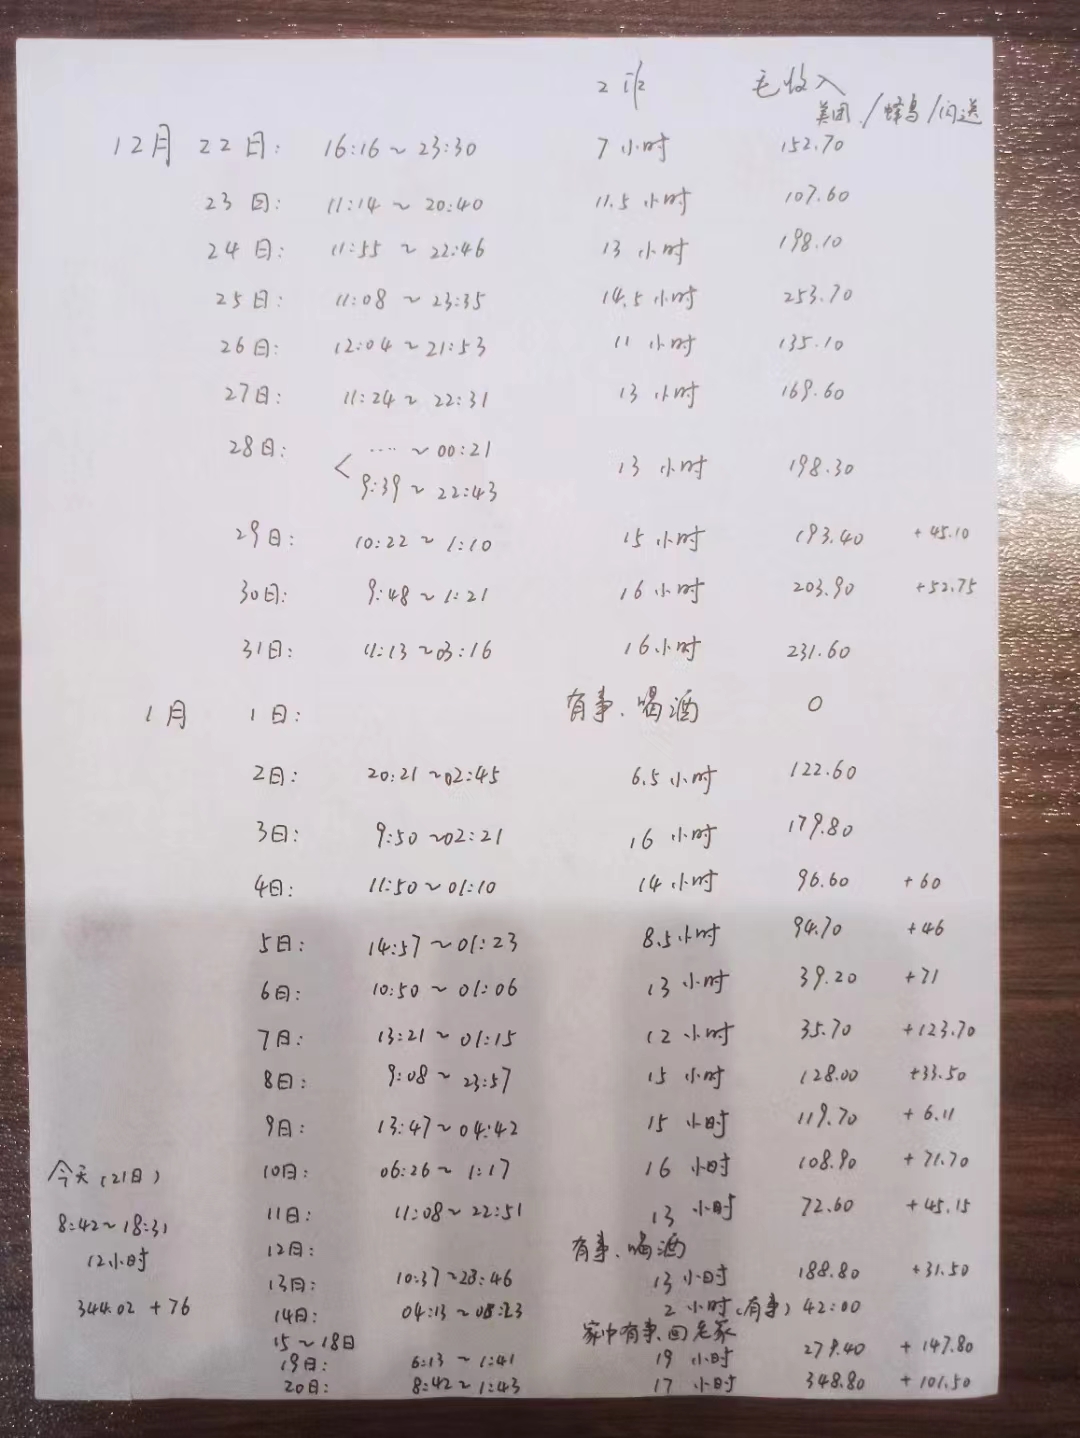 2班 毛收入
美团/蜂鸟/闪送
12月 22日: 16:16~23:30 7小时 152.70
23日: 11:14~20:40 11.5小时 107.60
24日: 11:55~22:46 13小时 198.10
25日: 11:08~23:35 14.5小时 253.70
26日: 12:04~21:53 11小时 135.10
27日: 11:24~22:31 13小时 169.60
28日: < ....~00:21
9:39~22:43 13小时 198.30
29日: 10:22~1:10 15小时 193.40 +45.10
30日: 9:48~1:21 16小时 203.90 +52.75
31日: 11:13~03:16 16小时 231.60
1月 1日: 有事、喝酒 0
2日: 20:21~02:45 6.5小时 122.60
3日: 9:50~02:21 16小时 179.80
4日: 11:50~01:10 14小时 96.60 +60
5日: 14:57~01:23 8.5小时 94.70 +46
6日: 10:50~01:06 13小时 39.20 +71
7日: 13:21~01:15 12小时 35.70 +123.70
8日: 9:08~23:57 15小时 128.00 +33.50
9日: 13:47~04:42 15小时 119.70 +6.11
10日: 06:26~1:17 16小时 108.90 +71.70
11日: 11:08~22:51 13小时 72.60 +45.15
12日: 有事、喝酒
13日: 10:37~23:46 13小时 188.80 +31.50
14日: 04:13~08:23 2小时(有事) 42:00
15~18日 家中有事、回老家
19日: 6:13~1:41 19小时 279.40 +147.80
20日: 8:42~1:43 17小时 348.80 +101.50
今天(21日)
8:42~18:31
12小时
344.02 +76